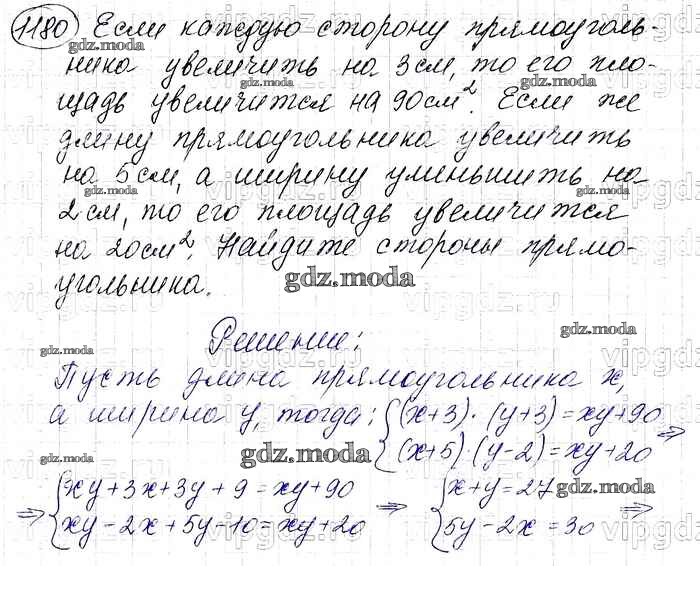 1180 Если каждую сторону прямоуголь-
ника увеличить на 3 см, то его пло-
щадь увеличится на 90 см². Если же
длину прямоугольника увеличить
на 5 см, а ширину уменьшить на
2 см, то его площадь увеличится
на 20 см². Найдите стороны прямо-
угольника.
Решение:
Пусть длина прямоугольника x,
а ширина y, тогда: {(x+3)·(y+3)=xy+90
(x+5)·(y-2)=xy+20 ⇒
⇒ {xy+3x+3y+9=xy+90
xy-2x+5y-10=xy+20 ⇒ {x+y=27
5y-2x=30 ⇒
gdz.moda
vipgdz.ru